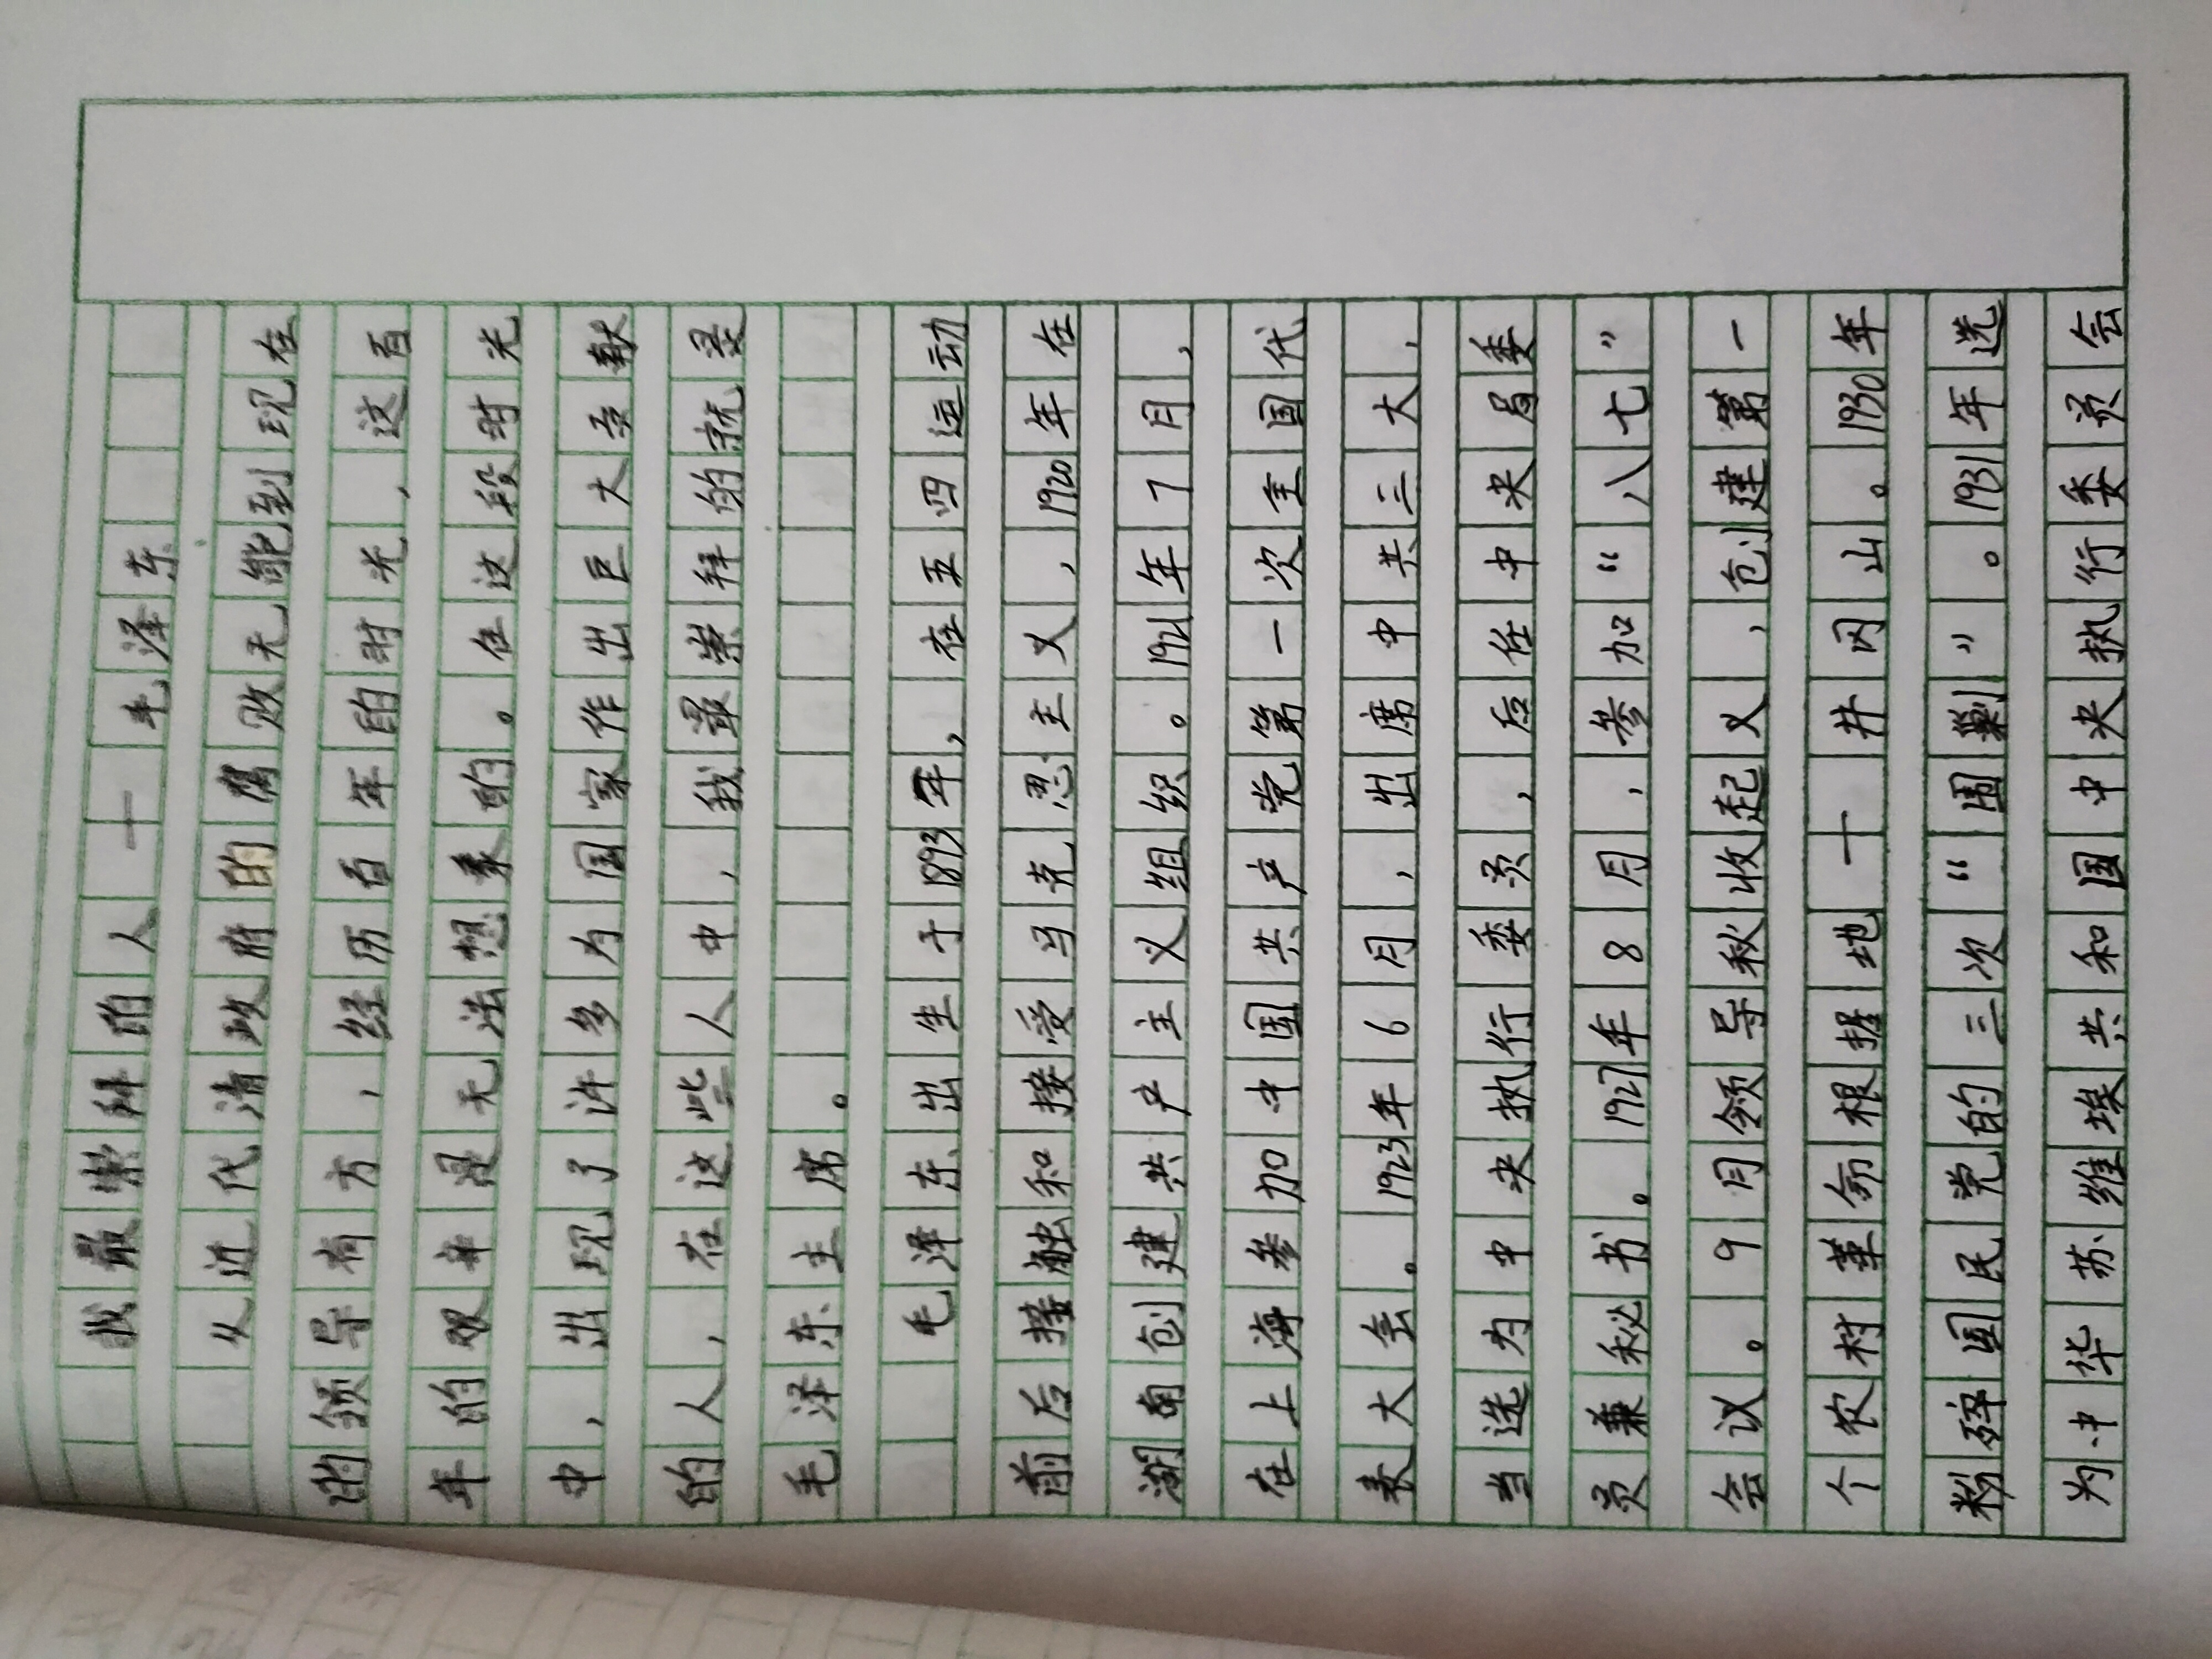 我最崇拜的人——毛泽东
从近代清政府的腐败无能到现在
的领导有方，经历百年的时光，这百
年的艰辛是无法想象的。在这段时光
中，出现了许多为国家作出巨大贡献
的人，在这些人中，我最崇拜的就是
毛泽东主席。
毛泽东出生于1893年，在五四运动
前后接触和接受马克思主义，1920年在
湖南创建共产主义组织。1921年7月，
在上海参加中国共产党第一次全国代
表大会。1923年6月，出席中共三大，
当选为中央执行委员，后任中央局委
员兼秘书。1927年8月，参加“八七”
会议。9月领导秋收起义，创建第一
个农村革命根据地——井冈山。1930年
粉碎国民党的三次“围剿”。1931年选
为中华苏维埃共和国中央执行委员会